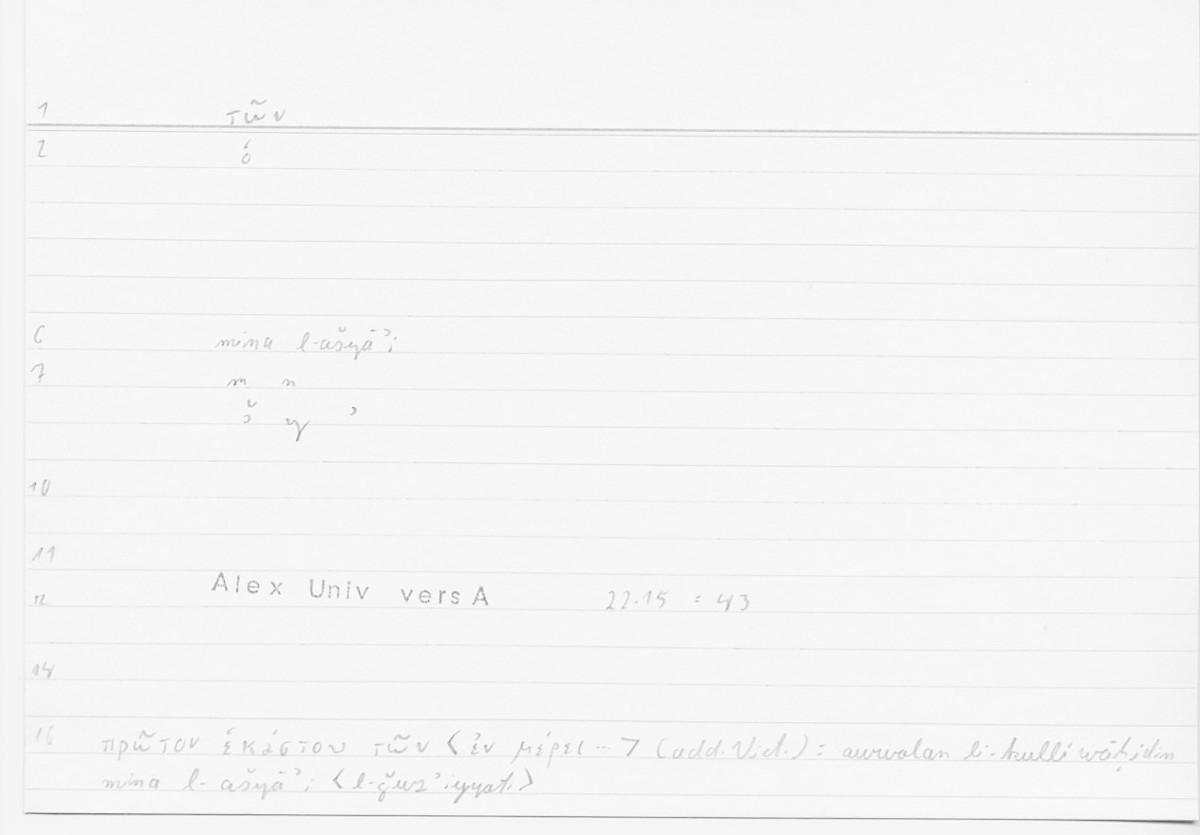 1 τῶν
2 ὁ
6 mina l-ašyāʾi
7 m n
š y ʾ
10
11
Alex Univ vers A
12 22.15 = 43
14
16 πρῶτον ἑκάστου τῶν <ἐν μέρει ... > (add. Vict.) = awwalan li-kulli wāḥidin
mina l-ašyāʾi <l-ǧuzʾiyyati>